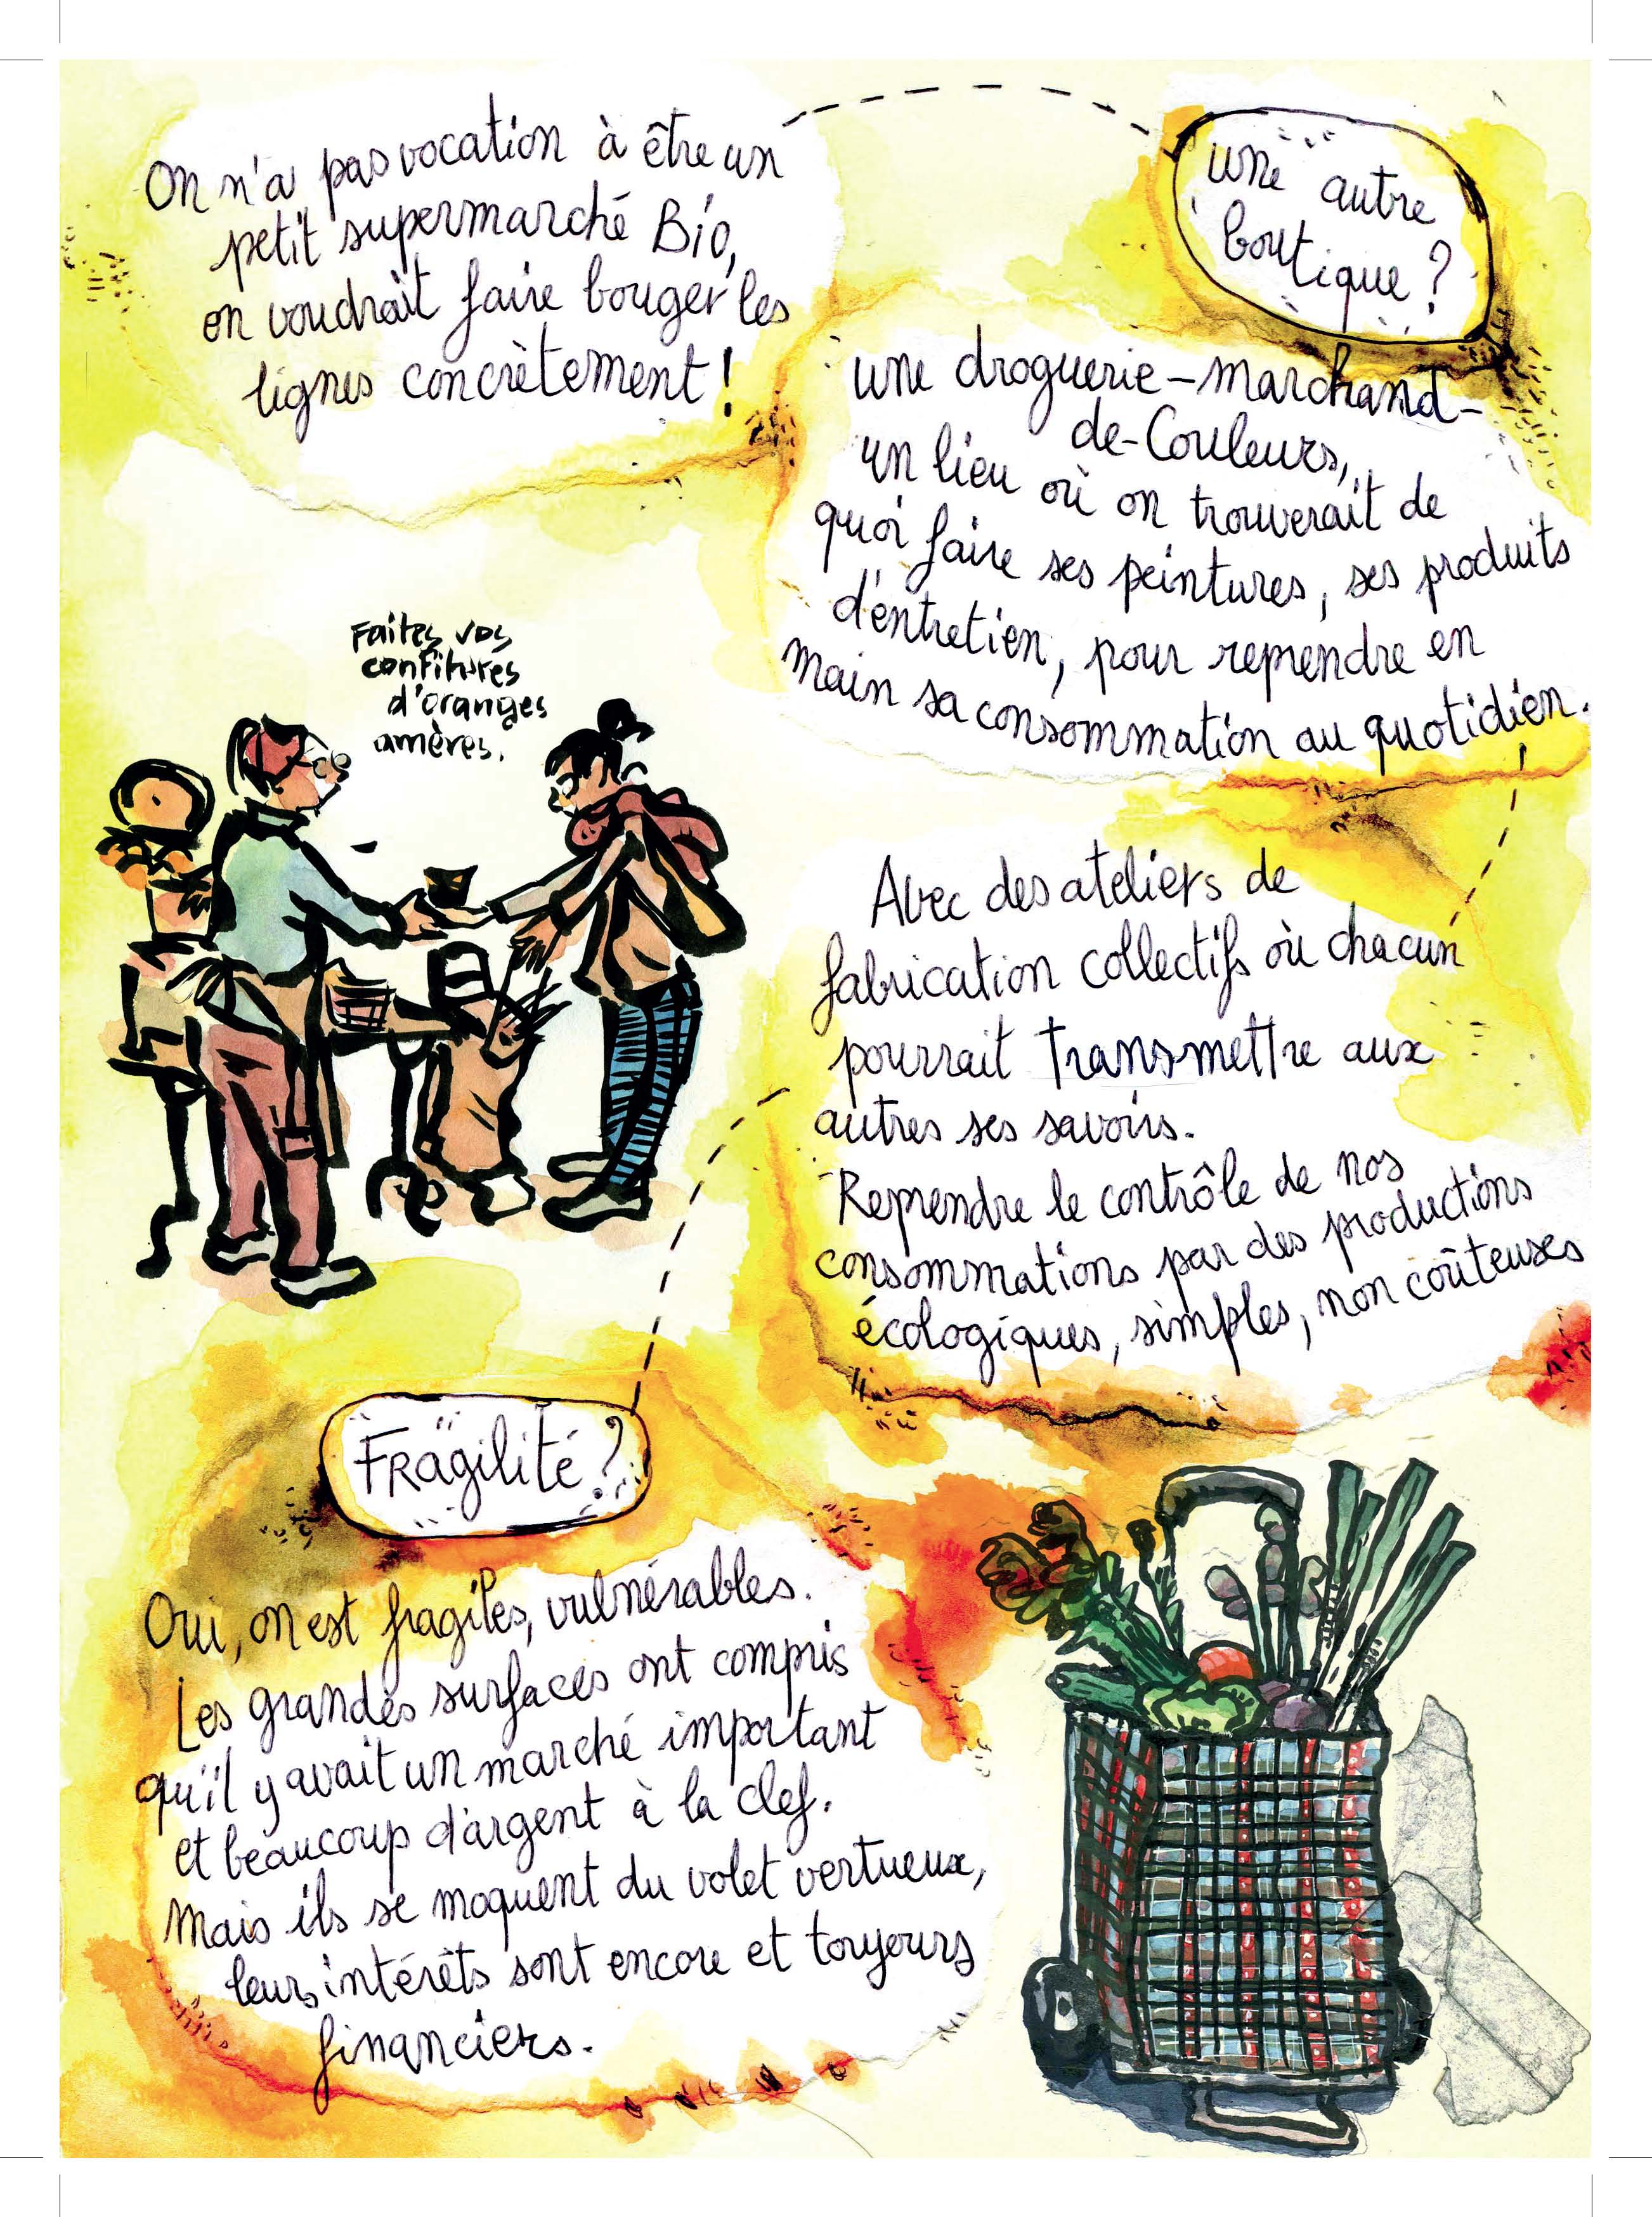 On n'a pas vocation à être un
petit supermarché Bio,
on voudrait faire bouger les
lignes concrètement !
une autre
boutique ?
une droguerie-marchand-
de-Couleurs,
un lieu où on trouverait de
quoi faire ses peintures, ses produits
d'entretien, pour reprendre en
main sa consommation au quotidien.
Faites vos
confitures
d'oranges
amères.
Avec des ateliers de
fabrication collectifs où chacun
pourrait transmettre aux
autres ses savoirs.
Reprendre le contrôle de nos
consommations par des productions
écologiques, simples, non coûteuses
FRagilité ?
Oui, on est fragiles, vulnérables.
Les grandes surfaces ont compris
qu'il y avait un marché important
et beaucoup d'argent à la clef.
Mais ils se moquent du volet vertueux,
leurs intérêts sont encore et toujours
financiers.